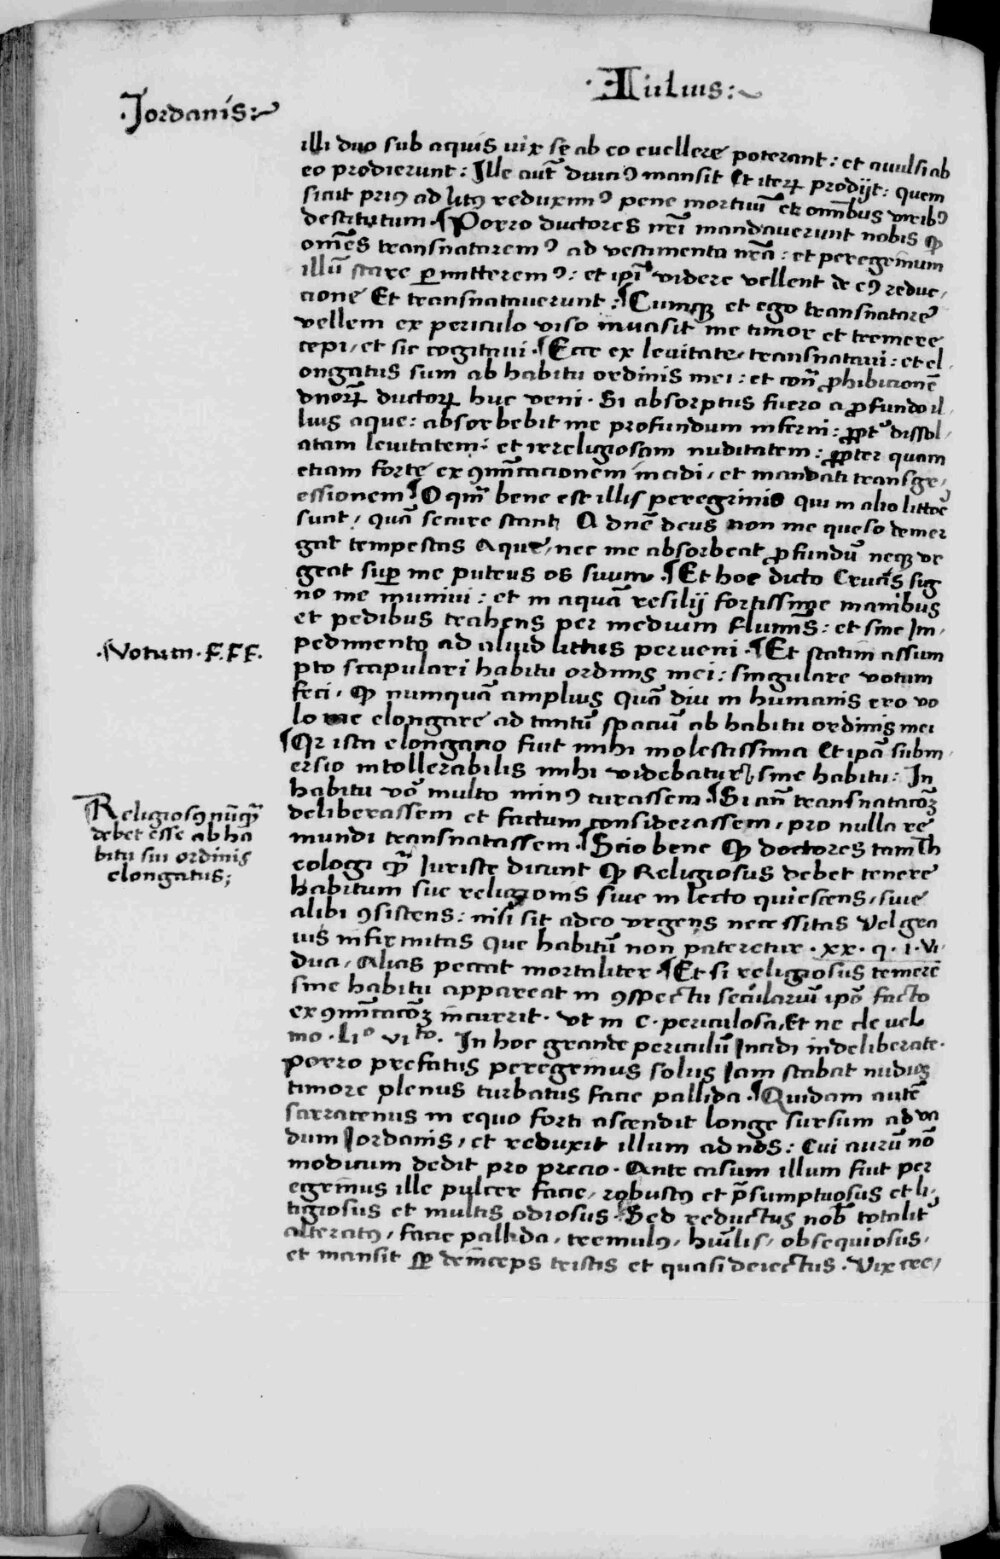 ·Iulius:~
·Jordanis:~
illi duo sub aquis uix se ab eo euellere poterant: et auulsi ab
eo prodierunt: Ille aut̄ diuciꝰ mansit Et iterꝫ prodijt: quem
sicut priꝰ ad litꝰ reduximꝰ pene mortuū et om̄ibus viribꝰ
destitutum. ¶Porro ductores nr̄i mandauerunt nobis ꝙ
om̄es transnataremꝰ ad vestimenta nr̄a: et peregrinum
illū stare ꝑmitteremꝰ: et ip̄i videre vellent de eiꝰ reduc/
cione Et transnatauerunt: ¶Cumqꝫ et ego transnatare
vellem ex periculo viso inuasit me timor et tremere
cepi/ et sic cogitaui. ¶Ecce ex leuitate/ transnataui: et el
ongatus sum ab habitu ordinis mei: et con̄ ꝓhibicionē
dnorꝫ ductorꝫ huc veni. Si absorptus fuero a ꝓfundo il/
lius aque: absorbebit me profundum inferni: ꝓpt̄ dissol/
atam leuitatem: et irreligiosam nuditatem: ꝓpter quam
etiam forte ex ꝯmūicacionem incidi/ et mandati transgr/
essionem ¶O qm̄ bene est illis peregrinis qui in alio littore
sunt/ quā secure stant. A dn̄e deus non me queso demer
gat tempestas Aque/ nec me absorbeat ꝓfundū neqꝫ vr
geat suꝑ me puteus os suum. ¶Et hoc dicto Crucis sig
no me muniui: et in aquā resilij fortissime manibus
et pedibus trahens per medium fluminis: et sine Im/
pedimento ad aliud littus perueni. ¶Et statim assum
·Votum. F.F.F.
pto scapulari habitu ordinis mei: singulare votum
feci. ꝙ numquā amplius quā diu in humanis ero vo
lo me elongare ad tantū spaciū ab habitu ordinis mei
¶Qꝛ ista elongacio fuit mihi molestissima Et ip̄a subm/
ersio intollerabilis mihi videbatur, sine habitu: In
habitu vō multo minꝰ curassem. ¶Si an̄ transnatacōꝫ
deliberassem et factum considerassem, pro nulla re
mundi transnatassem. ¶Scio bene ꝙ doctores tam Th
Religiosꝰ nūqꝫ
debet esse ab ha
bitu sui ordinis
elongatus;
eologi qꝫ Iuriste dicunt ꝙ Religiosus debet tenere
habitum sue religionis siue in lecto quiescens/ siue
alibi ꝯsistens: nisi sit adeo vrgens necessitas Vel gra
uis infirmitas que habitū non pateretur. xx. q. i. Vi/
dua, Alias peccat mortaliter. ¶Et si religiosus temere
sine habitu appareat in ꝯspectu seculariū ipō facto
ex ꝯmūicacōꝫ incurrit. Vt in c. periculosa, Et ne cle vel
mo. li° vi^to. In hoc grande periculū Incidi indeliberate.
Porro prefatus peregrinus solus Iam stabat nudus
timore plenus turbatus facie pallida. ¶Quidam autē
sarracenus in equo forti ascendit longe sursum ad va
dum Jordanis, et reduxit illum ad nos: Cui aurū nō
modicum dedit pro precio. Ante casum illum fuit per
egrinus ille pulcer facie, robustꝰ et p̄sumptuosus et li/
tigiosus et multis odiosus. Sed reductus nob̄ totalit̄
alteratꝰ, facie pallida, tremulꝰ, hūilis, obsequiosus,
et mansit sꝑ deinceps tristis et quasi deiectus. Vix cre/